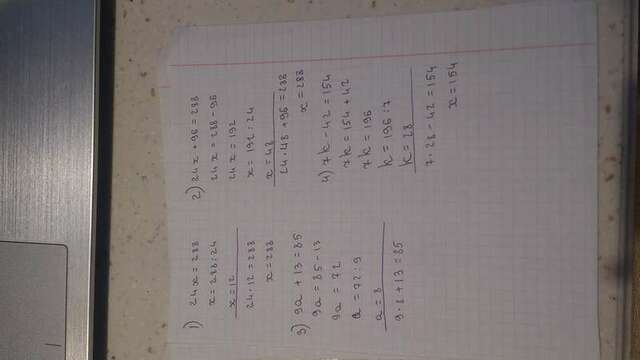 1) 24x = 288
x = 288 : 24
x = 12
24 · 12 = 288
x = 288
2) 24x + 96 = 288
24x = 288 - 96
24x = 192
x = 192 : 24
x = 48
24 · 48 + 96 = 288
x = 288
3) 9a + 13 = 85
9a = 85 - 13
9a = 72
a = 72 : 9
a = 8
9 · 8 + 13 = 85
4) 7k - 42 = 154
7k = 154 + 42
7k = 196
k = 196 : 7
k = 28
7 · 28 - 42 = 154
x = 154